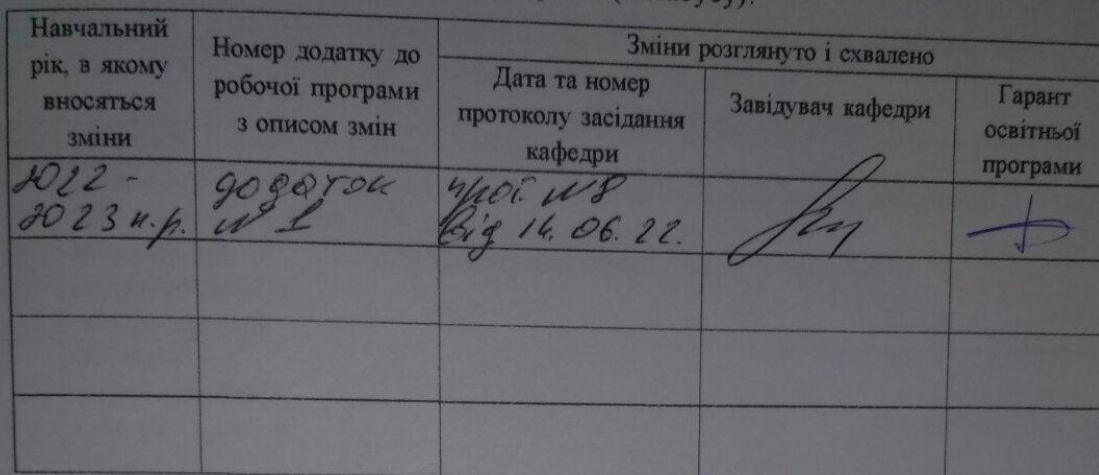 Навчальний
рік, в якому
вносяться
зміни
Номер додатку до
робочої програми
з описом змін
Зміни розглянуто і схвалено
Дата та номер
протоколу засідання
кафедри
Завідувач кафедри
Гарант
освітньої
програми
2022 -
2023 н.р.
додаток
№ 1
прот. №8
від 14. 06. 22.